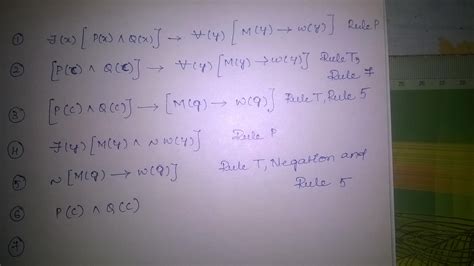 ① ∃(x) [P(x) ∧ Q(x)] → ∀(y) [M(y) → W(y)] Rule P
② [P(C) ∧ Q(C)] → ∀(y) [M(y) → W(y)] Rule T,
Rule 7
③ [P(C) ∧ Q(C)] → [M(q) → W(q)] Rule T, Rule 5
④ ∃(y) [M(y) ∧ ~W(y)] Rule P
⑤ ~[M(q) → W(q)] Rule T, Negation and
Rule 5
⑥ P(C) ∧ Q(C)
⑦